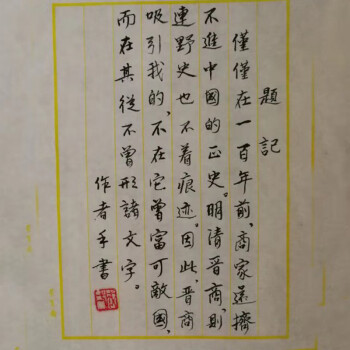 題記
僅僅在一百年前,商家還擠
不進中國的正史。明清晋商,則
連野史也不着痕迹。因此,晋商
吸引我的,不在它曾富可敵國,
而在其從不曾形諸文字。
作者手書